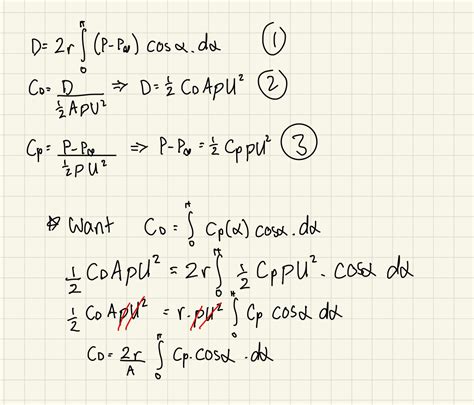 D = 2r ∫₀^π (P-P∞) cosα.dα ①
C_D = D / ½AρU² ⇒ D = ½ C_D AρU² ②
Cp = P-P∞ / ½ρU² ⇒ P-P∞ = ½ CpρU² ③
* Want C_D = ∫₀^π Cp(α) cosα.dα
½ C_D AρU² = 2r ∫₀^π ½ CpρU² . cosα dα
½ C_D AρU² = r.ρU² ∫₀^π Cp cosα dα
C_D = 2r/A ∫₀^π Cp.cosα .dα